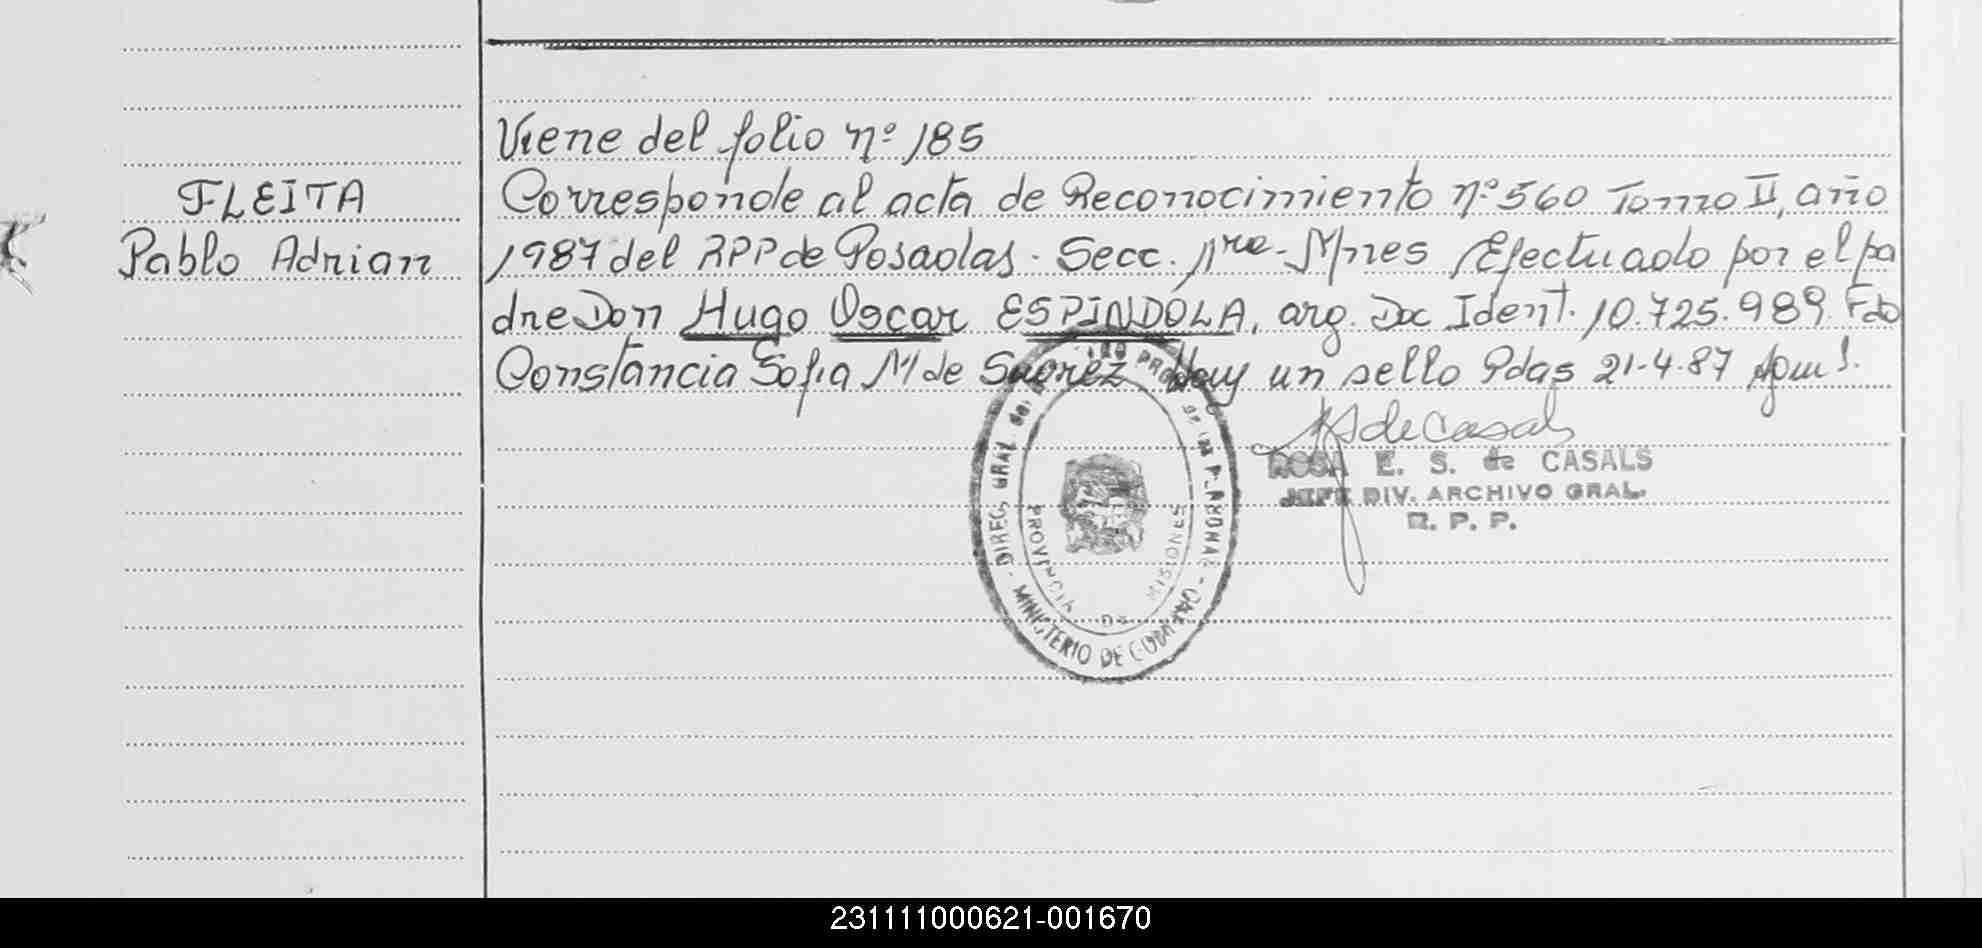 Viene del folio nº 185
FLEITA
Pablo Adrian
Corresponde al acta de Reconocimiento nº 560 Tomo II, año
1987 del RPP de Posadas. Secc. 1ra - Mnes Efectuado por el pa
dre Don Hugo Oscar ESPINDOLA, arg. Doc Ident. 10.725.989. Fdo
Constancia Sofia M de Suarez Hay un sello Pdas 21-4-87
de Casals
ROSA E. S. de CASALS
JEFE DIV. ARCHIVO GRAL.
R. P. P.
DIREC. GRAL del
de las PERSONAS
MINISTERIO DE GOBIERNO
PROVINCIA DE MISIONES
231111000621-001670